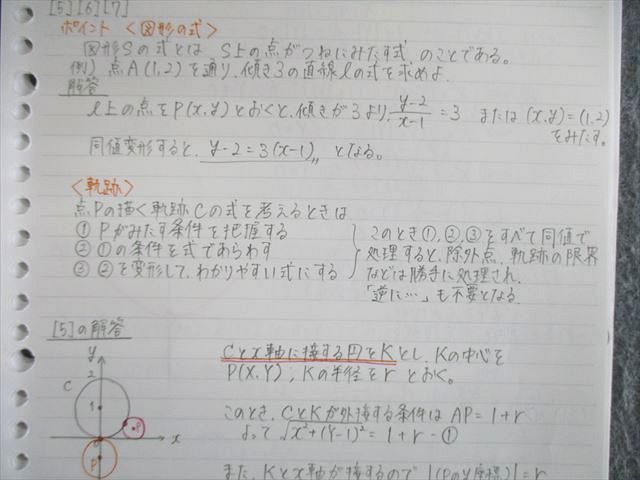 [5][6][7]
ポイント <図形の式>
図形Sの式とは、S上の点がつねにみたす式、のことである。
例) 点A(1,2)を通り、傾き3の直線ℓの式を求めよ。
解答
ℓ上の点をP(x,y)とおくと、傾きが3より、(y-2)/(x-1) = 3 または (x,y)=(1,2)
をみたす。
同値変形すると、y-2=3(x-1)〃 となる。
<軌跡>
点Pの描く軌跡Cの式を考えるときは
① Pがみたす条件を把握する
② ①の条件を式であらわす
③ ②を変形して、わかりやすい式にする
このとき①,②,③をすべて同値で
処理すると、除外点、軌跡の限界
などは勝手に処理され、
「逆に…」も不要となる。
[5]の解答
Cとx軸に接する円をKとし、Kの中心を
P(X,Y)、Kの半径をrとおく。
このとき、CとKが外接する条件は AP=1+r
よって √x²+(Y-1)² = 1+r -①
また、Kとx軸が接するので |(PのY座標)|=r
y
2
C
1
P
x
0
P